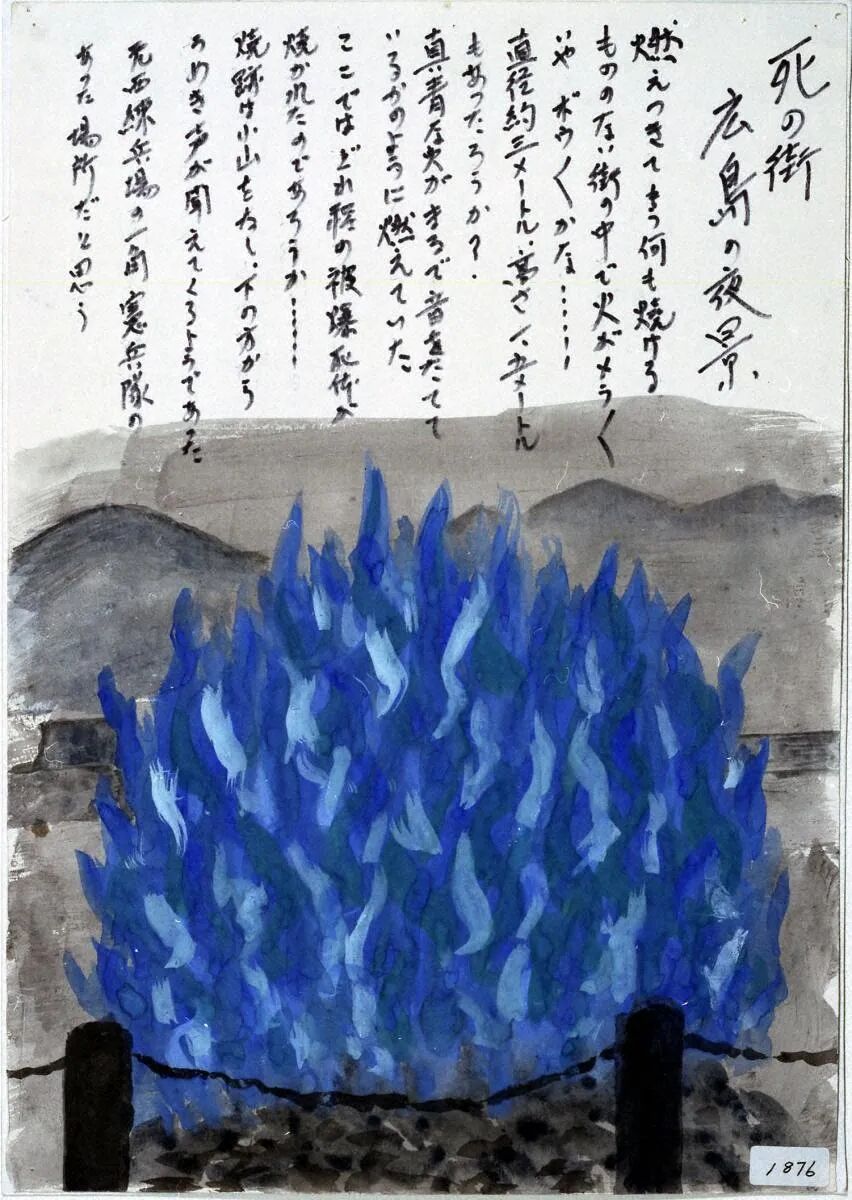 死の街
広島の夜景
燃えつきてもう何も焼ける
もののない街の中で火がメラ〱
いやボウ〱かな……!
直径約三メートル、高さ一、五メートル
もあつたろうか?
真青な火がまるで音をたてて
いるかのように燃えていた
ここではどれ程の被爆死体が
焼かれたのであろうか……
焼跡は小山をなし、下の方から
うめき声が聞えてくるようであった
元西練兵場の一角憲兵隊の
あった場所だと思う
1876